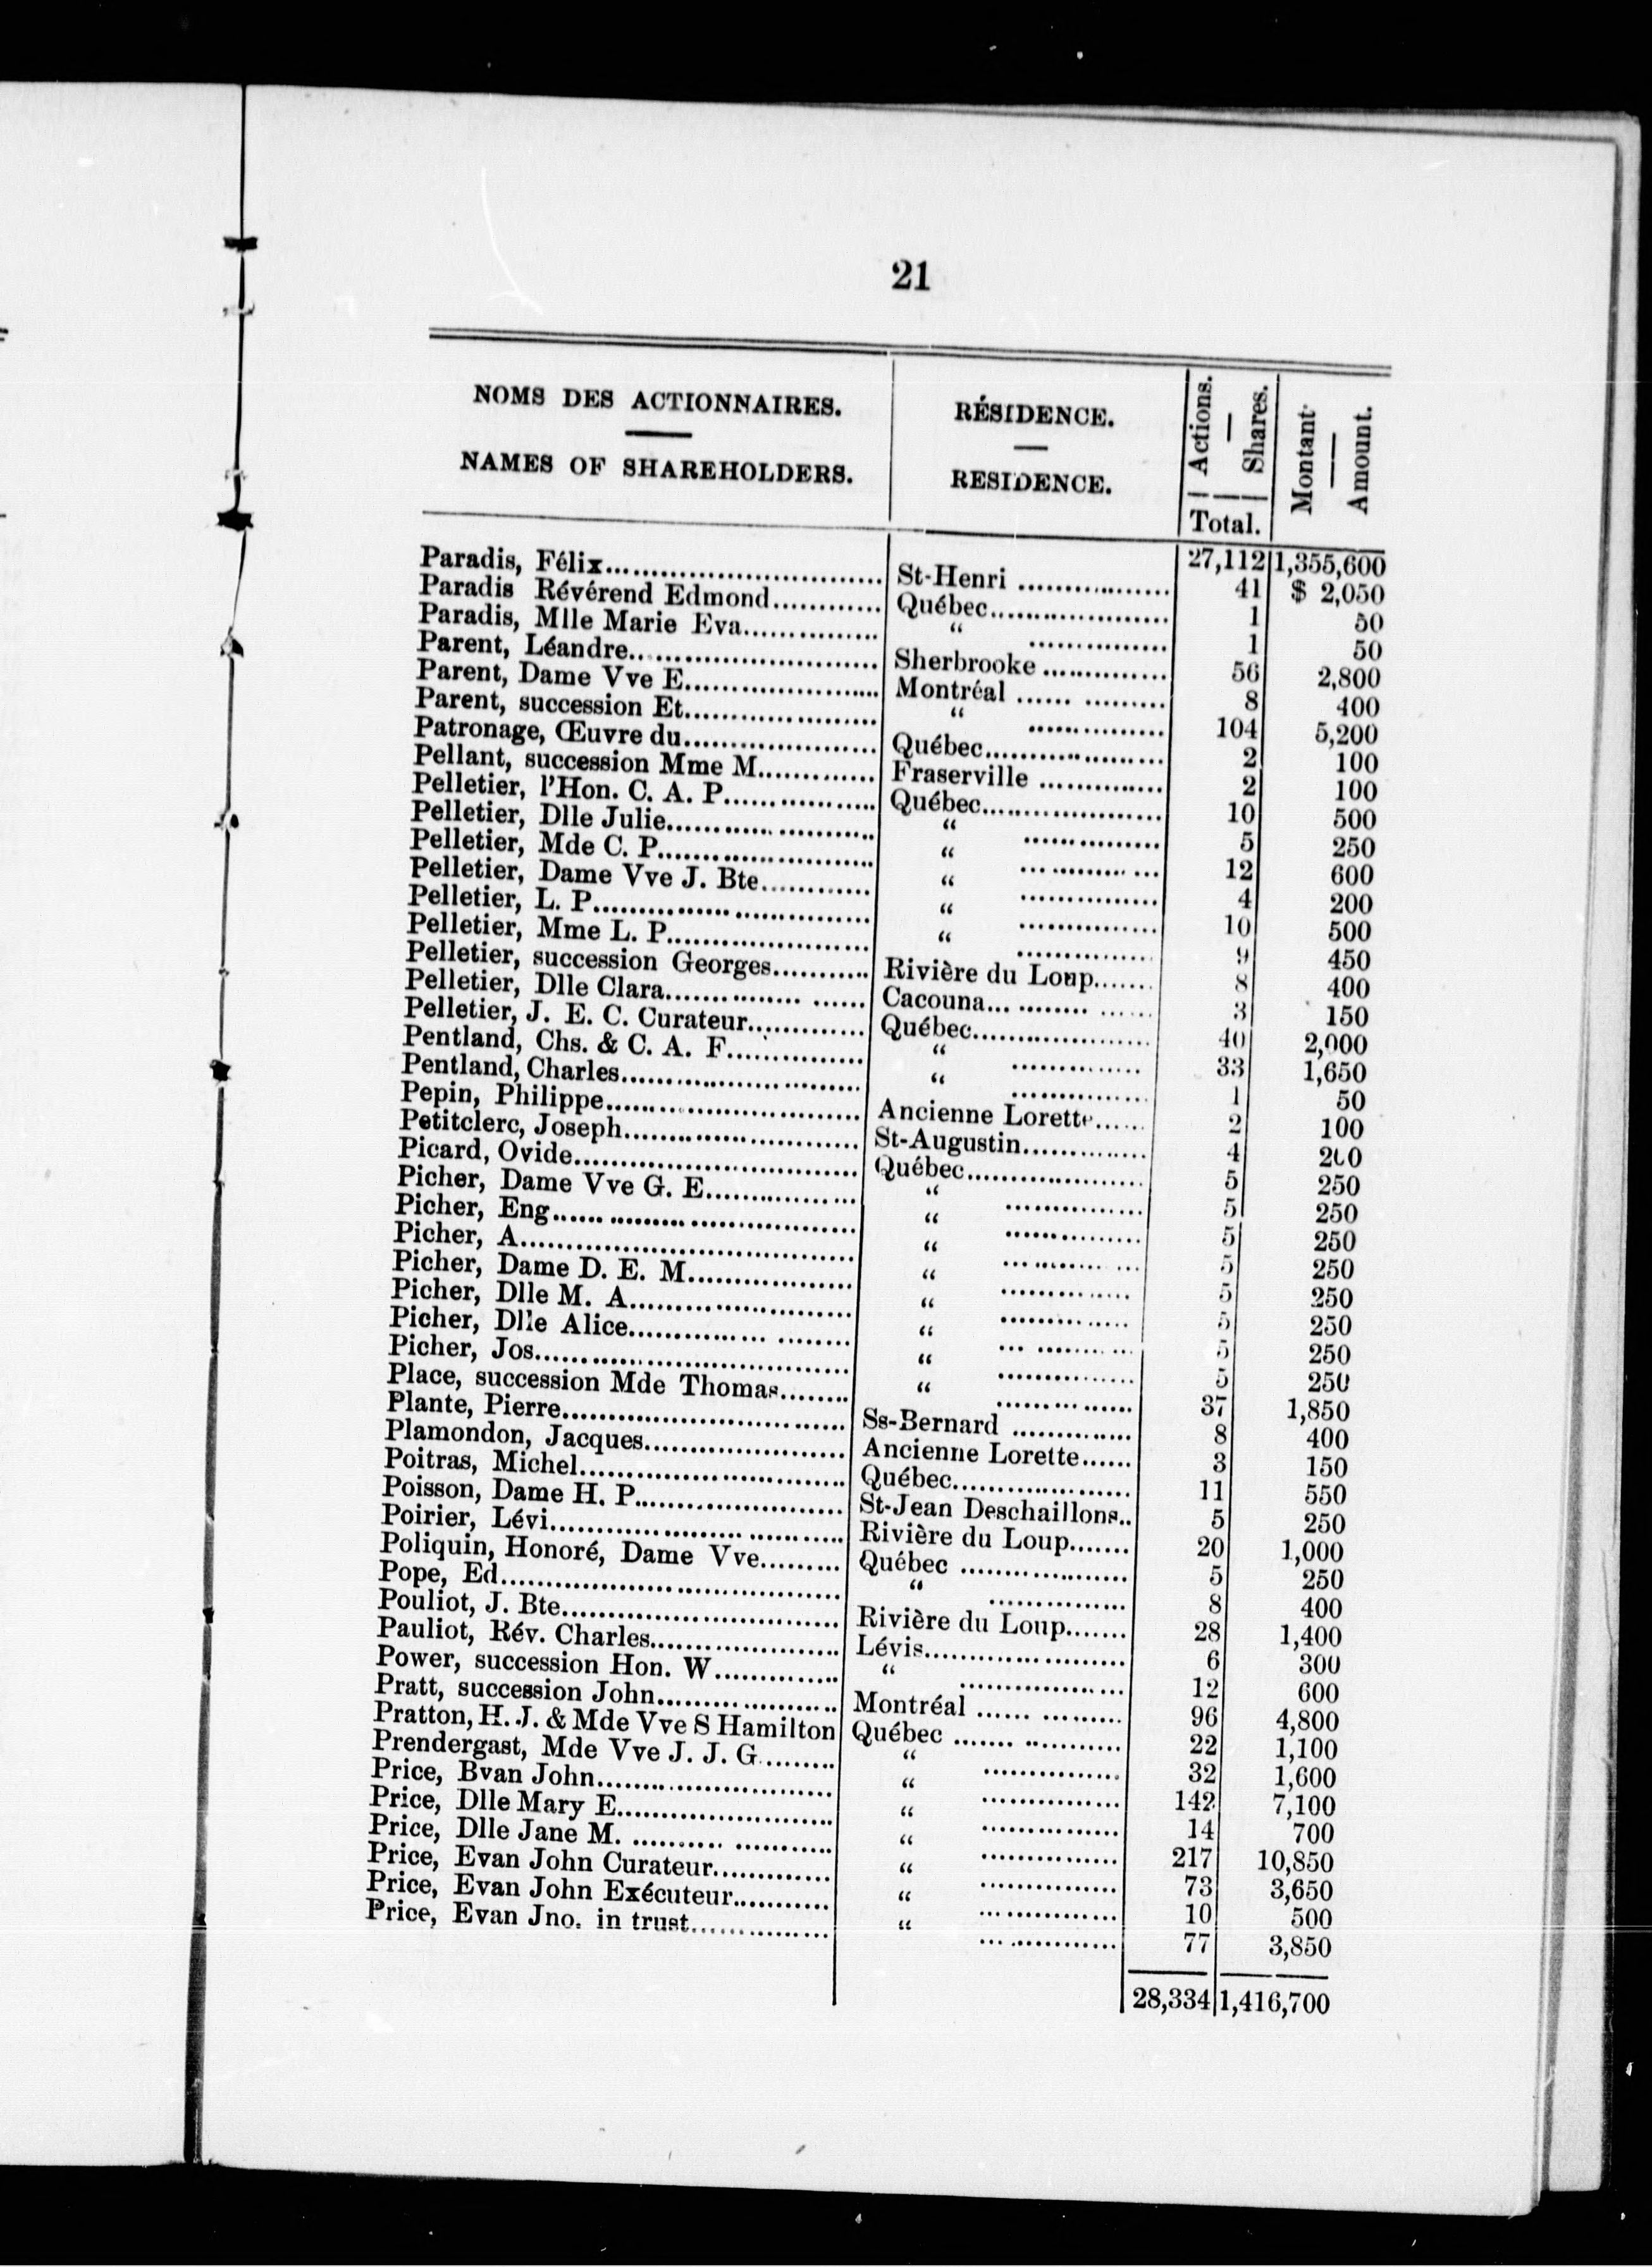 21
NOMS DES ACTIONNAIRES. RÉSIDENCE. Actions. — Shares. Montant — Amount.
NAMES OF SHAREHOLDERS. RESIDENCE.
Total.
27,112 1,355,600
Paradis, Félix St-Henri 41 $ 2,050
Paradis Révérend Edmond Québec 1 50
Paradis, Mlle Marie Eva “ 1 50
Parent, Léandre Sherbrooke 56 2,800
Parent, Dame Vve E Montréal 8 400
Parent, succession Et “ 104 5,200
Patronage, Œuvre du Québec 2 100
Pellant, succession Mme M Fraserville 2 100
Pelletier, l'Hon. C. A. P Québec 10 500
Pelletier, Dlle Julie “ 5 250
Pelletier, Mde C. P “ 12 600
Pelletier, Dame Vve J. Bte “ 4 200
Pelletier, L. P “ 10 500
Pelletier, Mme L. P “ 9 450
Pelletier, succession Georges Rivière du Loup 8 400
Pelletier, Dlle Clara Cacouna 3 150
Pelletier, J. E. C. Curateur Québec 40 2,000
Pentland, Chs. & C. A. F “ 33 1,650
Pentland, Charles “ 1 50
Pepin, Philippe Ancienne Lorette 2 100
Petitclerc, Joseph St-Augustin 4 200
Picard, Ovide Québec 5 250
Picher, Dame Vve G. E “ 5 250
Picher, Eng “ 5 250
Picher, A “ 5 250
Picher, Dame D. E. M “ 5 250
Picher, Dlle M. A “ 5 250
Picher, Dlle Alice “ 5 250
Picher, Jos “ 5 250
Place, succession Mde Thomas “ 37 1,850
Plante, Pierre Ss-Bernard 8 400
Plamondon, Jacques Ancienne Lorette 3 150
Poitras, Michel Québec 11 550
Poisson, Dame H. P St-Jean Deschaillons 5 250
Poirier, Lévi Rivière du Loup 20 1,000
Poliquin, Honoré, Dame Vve Québec 5 250
Pope, Ed “ 8 400
Pouliot, J. Bte Rivière du Loup 28 1,400
Pauliot, Rév. Charles Lévis 6 300
Power, succession Hon. W “ 12 600
Pratt, succession John Montréal 96 4,800
Pratton, H. J. & Mde Vve S Hamilton Québec 22 1,100
Prendergast, Mde Vve J. J. G “ 32 1,600
Price, Bvan John “ 142 7,100
Price, Dlle Mary E “ 14 700
Price, Dlle Jane M. “ 217 10,850
Price, Evan John Curateur “ 73 3,650
Price, Evan John Exécuteur “ 10 500
Price, Evan Jno. in trust “ 77 3,850
28,334 1,416,700